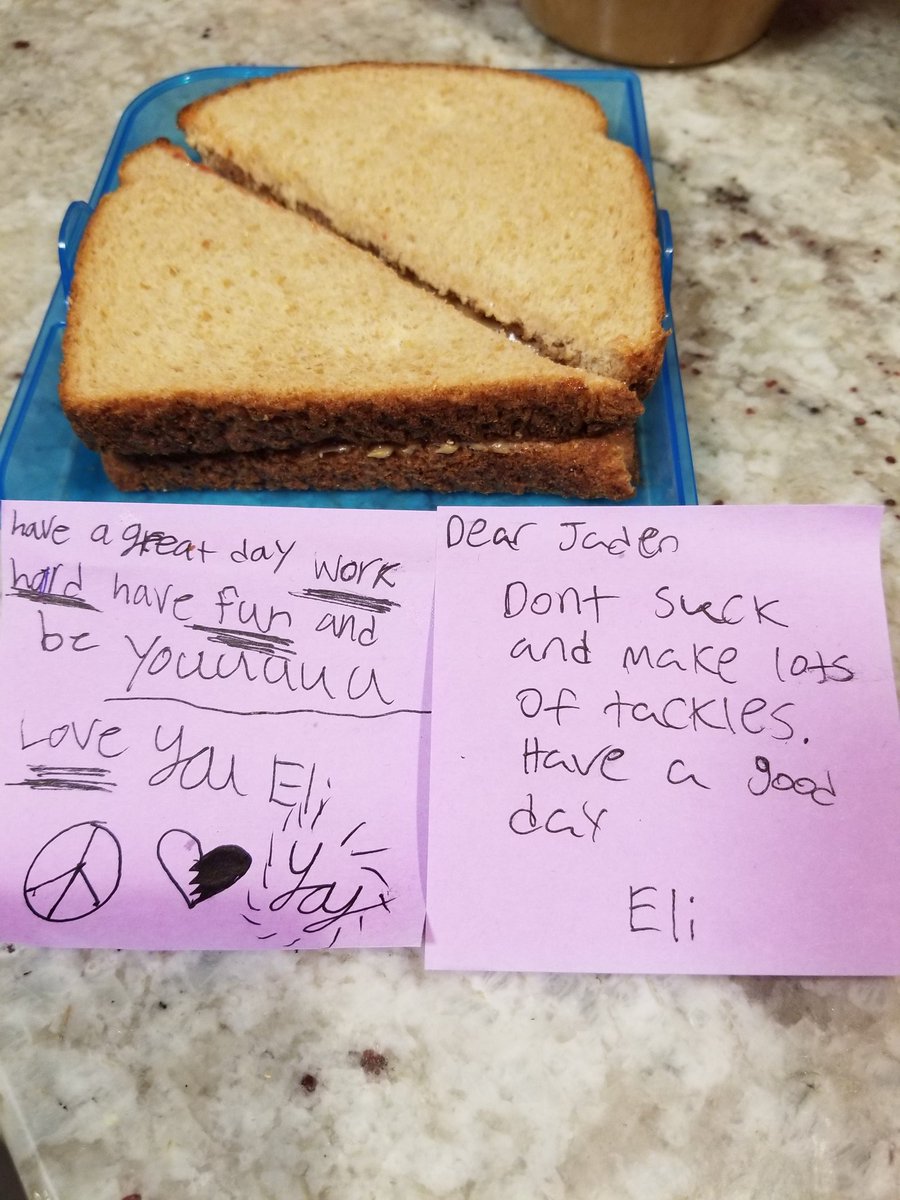 have a great day work
hard have fun and
be youuuuuu
Love you Eli
yay
Dear Jaden
Dont suck
and make lots
of tackles.
Have a good
day
Eli